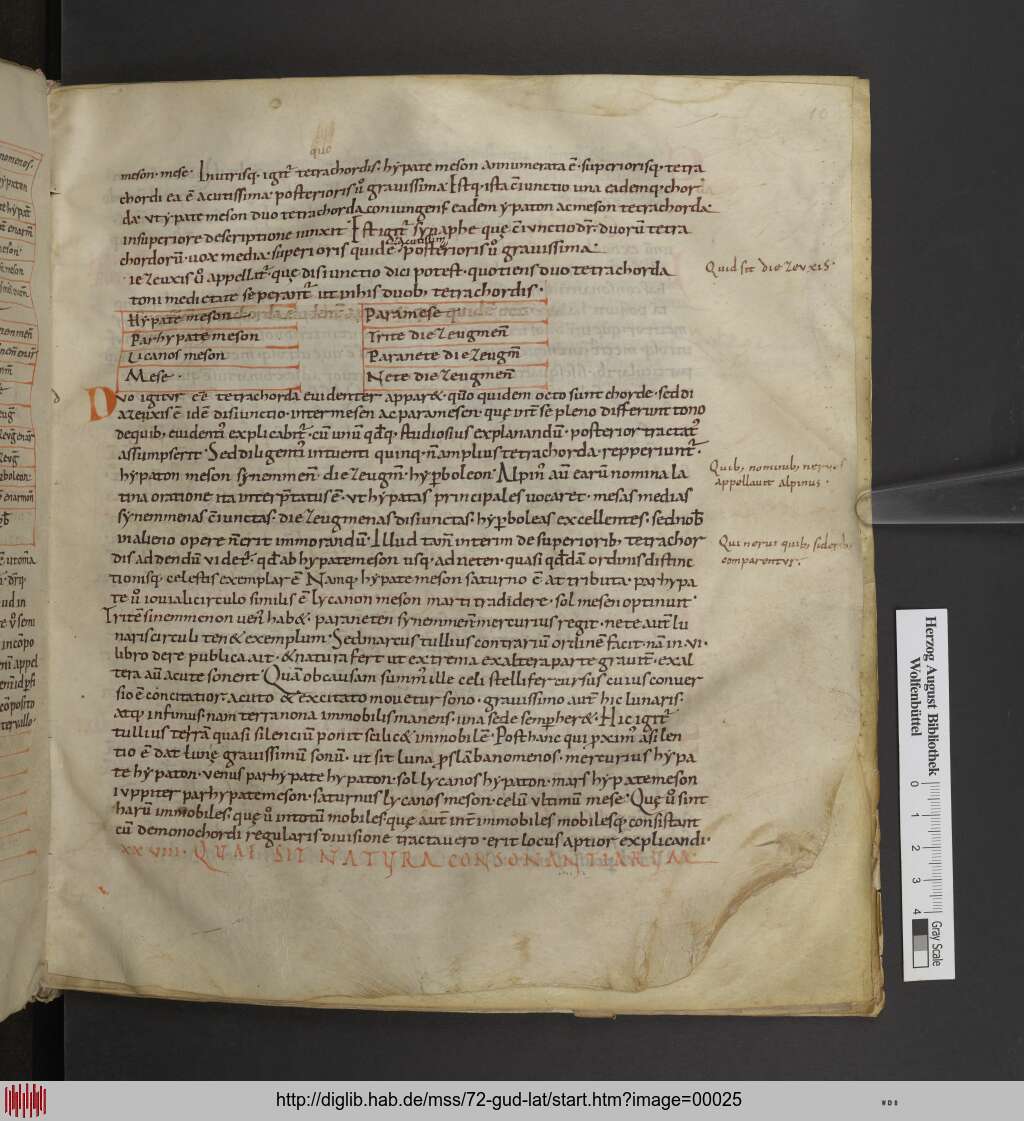 10
quo
meson· mese· Inutrisq· igit̄ tetrachordis· hẏpate meson annumerata ē· superiorisq· tetra
chordi ea ē acutissima· posterioris ū grauissima· Estq· ista c̄iunctio una eademq· chor
da· ut ẏpate meson duo tetrachorda coniungens eadem ẏpaton ac meson tetrachorda·
insuperiore descriptione iunxit· Est igit̄ sẏnaphe quę c̄iunctio dr̄· duorū tetra
chordorū· uox media· superioris quidē acutissima· posterioris ū grauissima·
iezeuxis ū appellat̄· quę disiunctio dici potest· quotiens duo tetrachorda
toni medietate seperant̄ ut in his duob; tetrachordis·
Quid sit diezeuxis·
Hẏpate meson
Paramese
Parhypate meson
Trite diezeugmen̄
Licanos meson
Paranete diezeugm̄
Mese·
Nete diezeugmen̄
Duo igitur ēē tetrachorda euidenter apparet· quo quidem octo sunt chorde· sed di
azeuxis ē idē disiunctio· inter mesen ac paramesen· quę int̄ se pleno differunt tono
de quib; euidenti explicabit̄· cū unū qdq; studiosius explanandū· posterior tractat̄
assumpserit· Sed diligenti intuenti quinq· n̄ amplius tetrachorda· repperiunt̄·
hẏpaton meson sẏnemmen̄· diezeugm̄· hẏpboleon· Alpin̄ aū earū nomina la
tina oratione ita interp̄tatus ē· ut hẏpatas principales uocaret· mesas medias
sẏnemmenas c̄iunctas· diezeugmenas disiunctas· hẏpboleas excellentes· sed nob̄
in alieno opere n̄ erit immorandū· Illud tam̄ interim de superiorib; tetrachor
dis addendū uidet̄· qd ab hypate meson usq· ad neten· quasi qddā ordinis distinc
tionisq· celestis exemplar ē· Namq· hẏpate meson saturno ē attributa· parhypa
te ū iouiali circulo similis ē· lycanon meson marti tradidere· sol mesen optinuit·
Tritē sinemmenon uen̄ habet· paraneten sẏnemmen̄ mercurius regit· nete aut̄ lu
naris circuli tenet exemplum· Sed marcus tullius contrariū ordinē facit· nā in· vi·
libro de re publica ait· et natura fert ut extrema ex altera parte grauit̄· ex al
tera aū acute sonent· Quā ob causam summ̄ ille celi stellifer cursus cuius conuer
sio ē concitatior· acuto et excitato mouetur sono· grauissimo aut̄ hic lunaris·
atq; infimus· nam terra nona immobilis manens· una sede semp heret· Hic igit̄
tullius terrā quasi silenciū ponit scilicet immobilē· Post hanc qui pxim̄ a silen
tio ē dat lunę grauissimū sonū· ut sit luna pslābanomenos· mercurius hẏpa
te hẏpaton· uenus parhẏpate hypaton· sol lycanos hẏpaton· mars hẏpate meson
iuppiter parhypate meson· saturnus lycanos meson· celū ultimū mese· Quę ū sint
harū immobiles· quę ū in totū mobiles· quę aut̄ int̄ immobiles mobilesq; consistant
cū de monochordi regularis diuisione tractauero· erit locus aptior explicandi·
xxviii· QUAE SIT NATURA CONSONANTIARUM·
Quib; nominib; neruos
appellauit alpinus·
Qui nerui quib; siderib;
comparentur·
Herzog August Bibliothek
Wolfenbüttel
0 1 2 3 4
Gray Scale
http://diglib.hab.de/mss/72-gud-lat/start.htm?image=00025